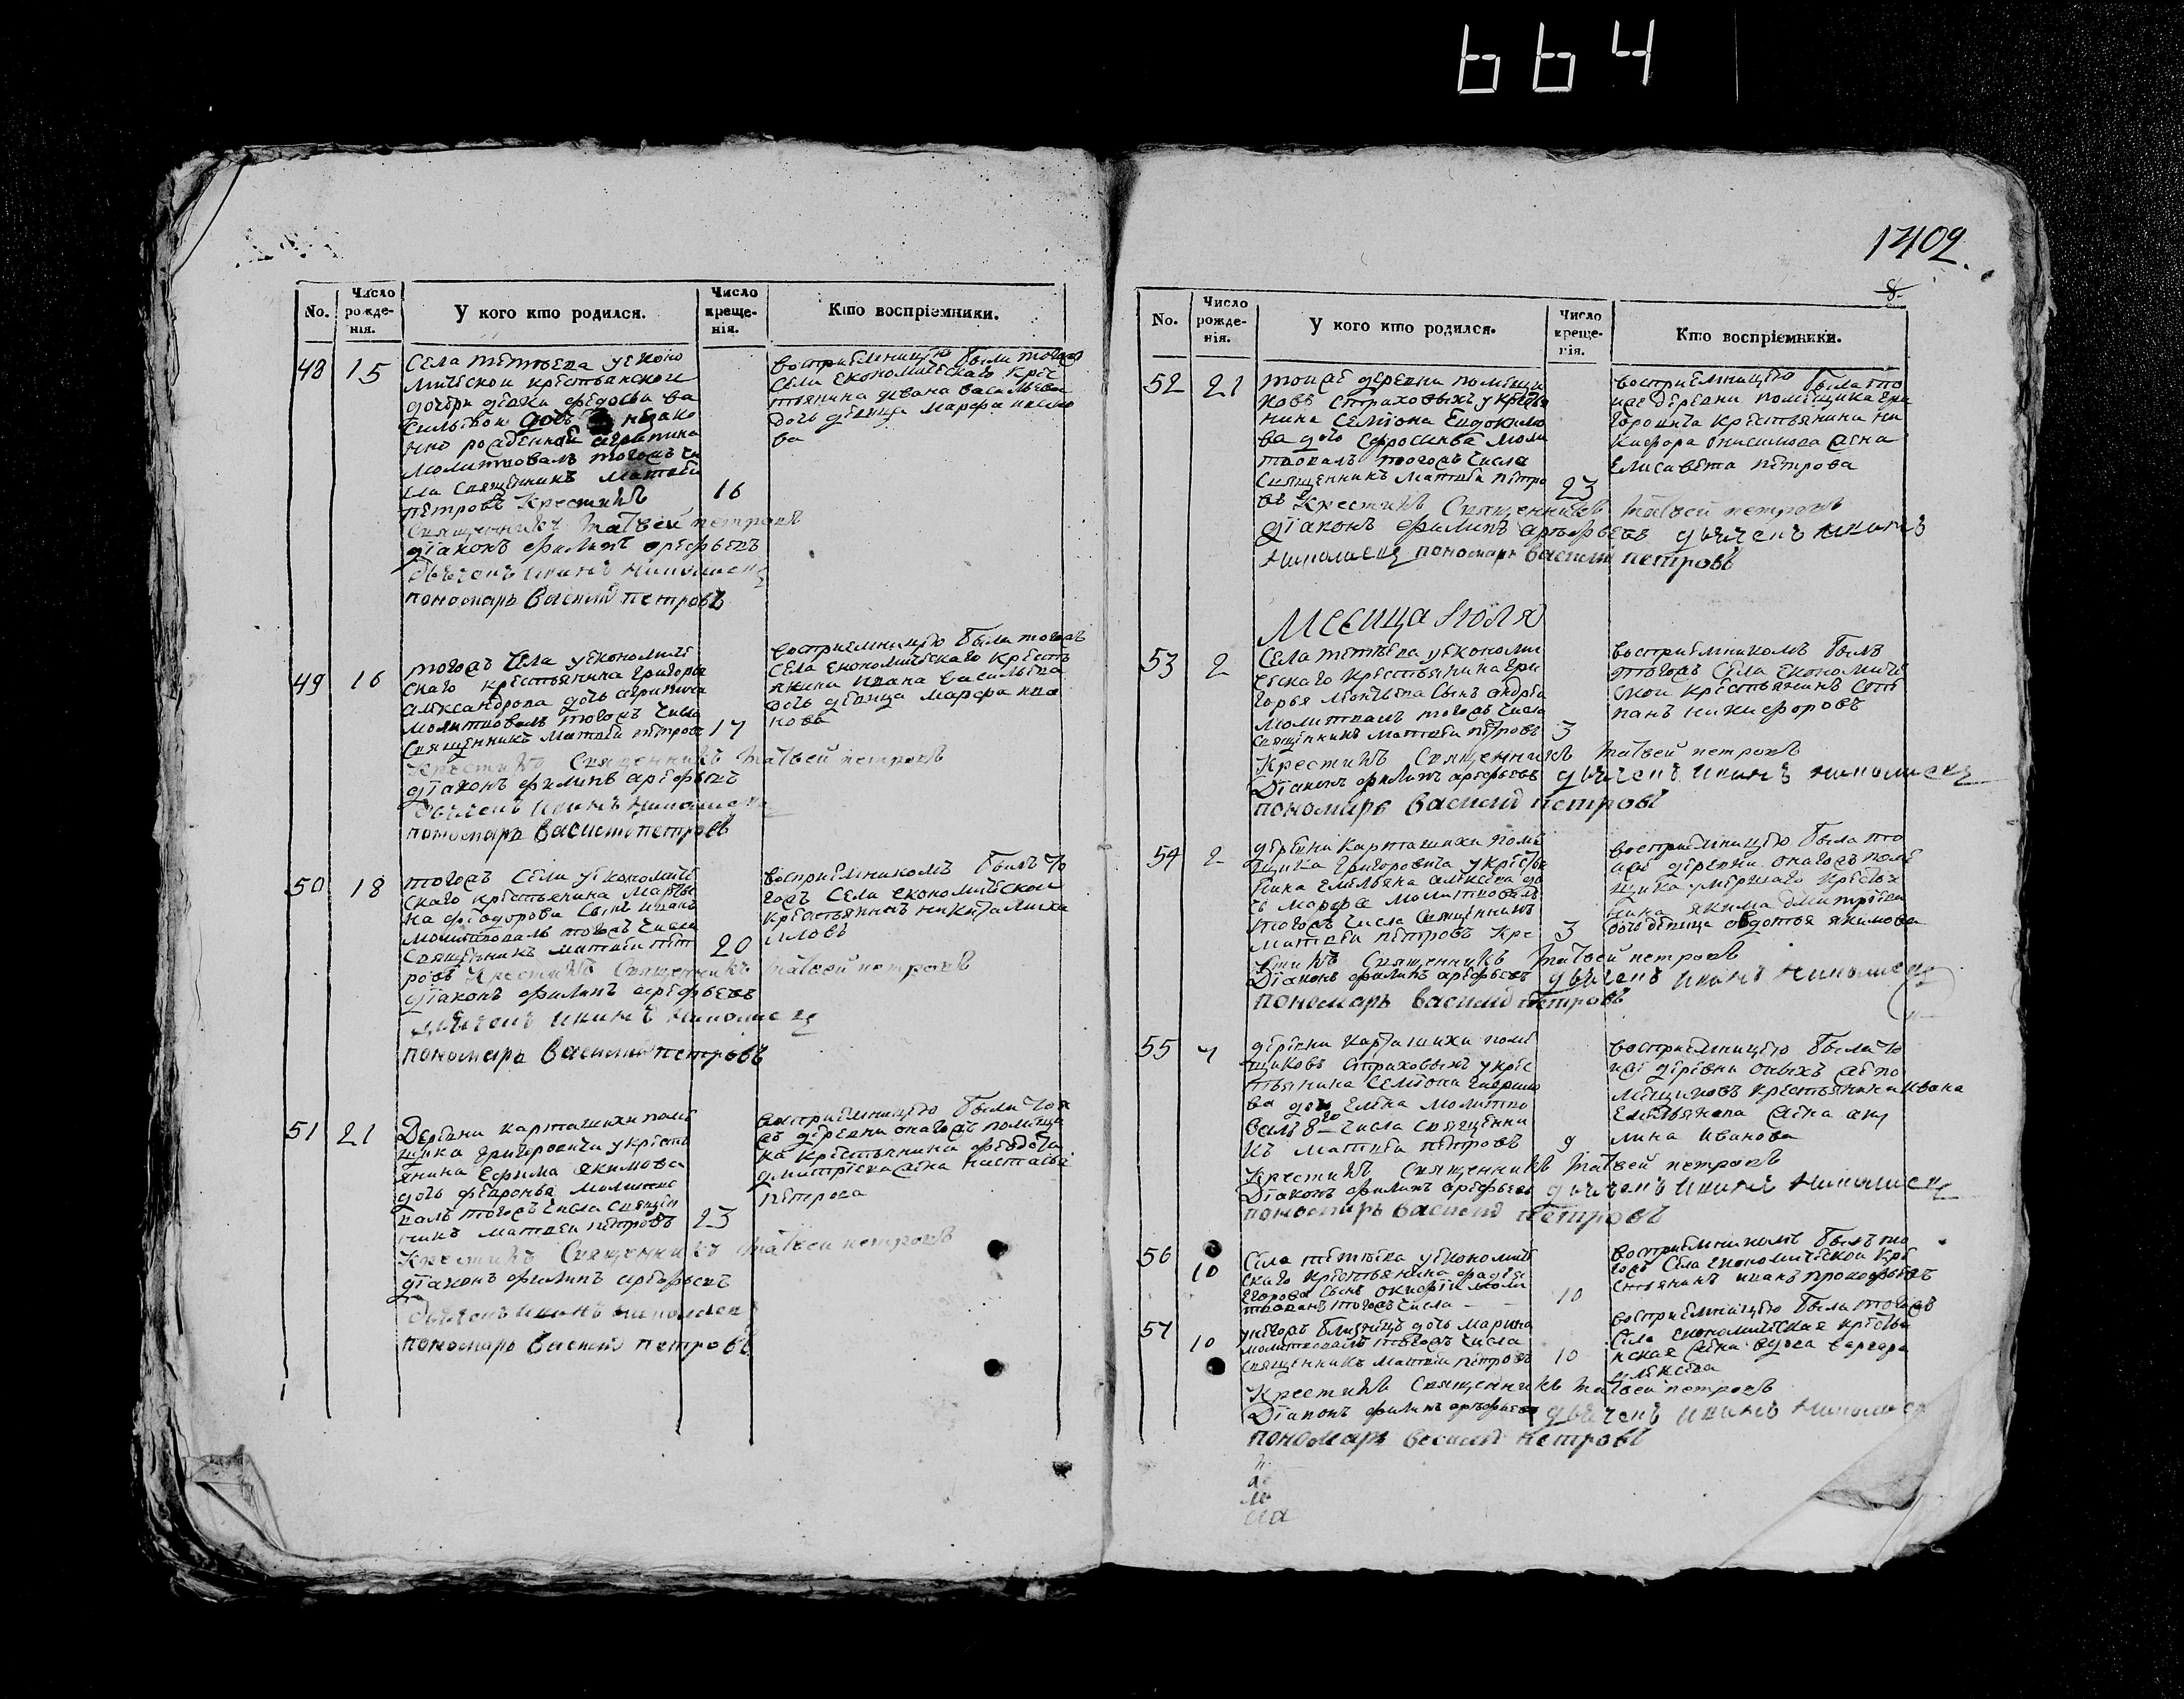 664
1402.
8.
No.
Число рожденія.
У кого кто родился.
Число крещенія.
Кто воспріемники.
48
15
Села тетеева у эконо
мической крестьянской
дочери девки федосьи ва
сильевой дочь незако
нно рожденной агрипина
молитвовалъ тогожъ чи
сла священникъ матвей
петровъ Крестилъ
16
Священникъ Матвей петровъ
діаконъ филипъ арефьевъ
пономарь василий петровъ
восприемницею была тогожъ
села економическаго крес
тьянина ивана васильева
дочь девица марфа ивано
ва
49
16
тогожъ села у економиче
скаго крестьянина григорья
александрова дочь агрипина
молитвовалъ тогожъ числа
священникъ матвей петровъ
17
Крестилъ Священникъ Матвей петровъ
діаконъ филипъ арефьевъ
пономарь василий петровъ
восприемницею была тогожъ
села економическаго кресть
янина ивана васильева
дочь девица марфа ива
нова
50
18
тогожъ села у економиче
скаго крестьянина марты
на феодорова сынъ иванъ
молитвовалъ тогожъ числа
священникъ матвей пет
20
ровъ Крестилъ Священникъ Матвей петровъ
діаконъ филипъ арефьевъ
пономарь василий петровъ
восприемникомъ былъ то
гожъ села економической
крестьянинъ никита миха
иловъ
51
21
Деревни карташихи поме
щика григоровича у кресть
янина ефима якимова
дочь февронья молитво
валъ тогожъ числа священ
никъ матвей петровъ
23
Крестилъ Священникъ Матвей петровъ
діаконъ филипъ арефьевъ
пономарь василий петровъ
восприемницею была тоя
жъ деревни онагожъ помещи
ка крестьянина
дмитриева жена настасья
петрова
No.
Число рожденія.
У кого кто родился.
Число крещенія.
Кто воспріемники.
52
21
тойже деревни помещи
ковъ страховыхъ у кресть
нина семиона евдокимо
ва дочь ефросинья моли
твовалъ тогожъ числа
священникъ матвей петро
23
въ Крестилъ Священникъ Матвей петровъ
діаконъ филипъ арефьевъ
пономарь василий петровъ
восприемницею была то
яже деревни помещика гри
горовича крестьянина ни
кифора онисимова жена
елисавета петрова
Месица Июля
53
2
Села тетеева у економи
ческаго крестьянина гри
горья сынъ андрей
молитвовалъ тогожъ числа
священникъ матвей петровъ
3
Крестилъ Священникъ Матвей петровъ
Діаконъ филипъ арефьевъ
пономарь василий петровъ
восприемникомъ былъ
тогожъ села економиче
ской крестьянинъ сте
панъ никифоровъ
54
2
деревни карташихи поме
щика григоровича у кресть
янина емельяна алексеева до
чь марфа молитвовалъ
тогожъ числа священникъ
матвей петровъ Кре
3
стилъ Священникъ Матвей петровъ
Діаконъ филипъ арефьевъ
пономарь василий петровъ
восприемницею была то
яже деревни онагожъ поме
щика умершаго крестья
нина якима дмитриева
дочь девица овдотья якимова
55
7
деревни карташихи поме
щиковъ страховыхъ у крес
тьянина семиона гаврило
ва дочь елена молитво
валъ 8го числа священни
къ матвей петровъ
9
Крестилъ Священникъ Матвей петровъ
Діаконъ филипъ арефьевъ
пономарь василий петровъ
восприемницею была то
яже деревни оныхъ же по
мещиковъ крестьянина ивана
емельянова жена аку
лина иванова
56
10
Села тетеева у економиче
скаго крестьянина фадея
егорова сынъ
твовалъ тогожъ числа
10
восприемникомъ былъ то
гожъ села економической кре
стьянинъ иванъ прокофьевъ
57
10
унегожъ близнецъ дочь марина
молитвовалъ тогожъ числа
священникъ матвей петровъ
10
Крестилъ Священникъ Матвей петровъ
Діаконъ филипъ арефьевъ
пономарь василий петровъ
восприемницею была тогожъ
села економическая крестья
нская жена вдова варвара
алексеева